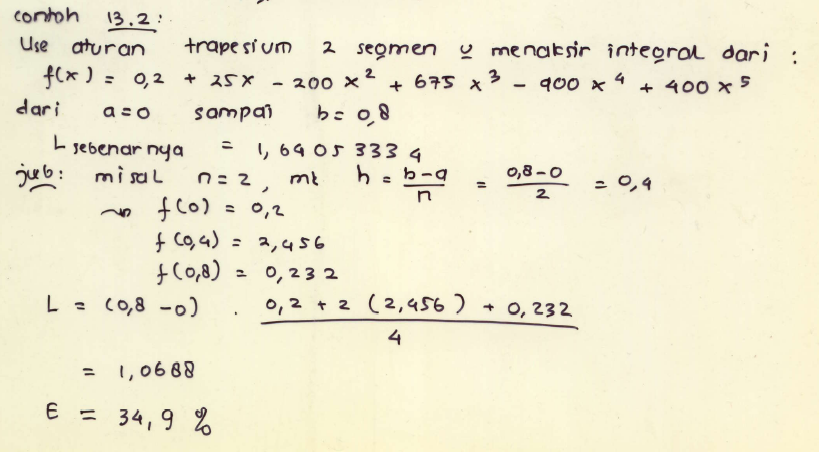 contoh 13.2 :
Use aturan trapesium 2 segmen u menaksir integral dari :
f(x) = 0,2 + 25x - 200 x² + 675 x³ - 900 x⁴ + 400 x⁵
dari a=0 sampai b= 0,8
L sebenarnya = 1,64053334
jwb: misal n=2, mk h = \frac{b-a}{n} = \frac{0,8-0}{2} = 0,4
~> f(0) = 0,2
f(0,4) = 2,456
f(0,8) = 0,232
L = (0,8 -0) . \frac{0,2 + 2 (2,456) + 0,232}{4}
= 1,0688
E = 34,9 %